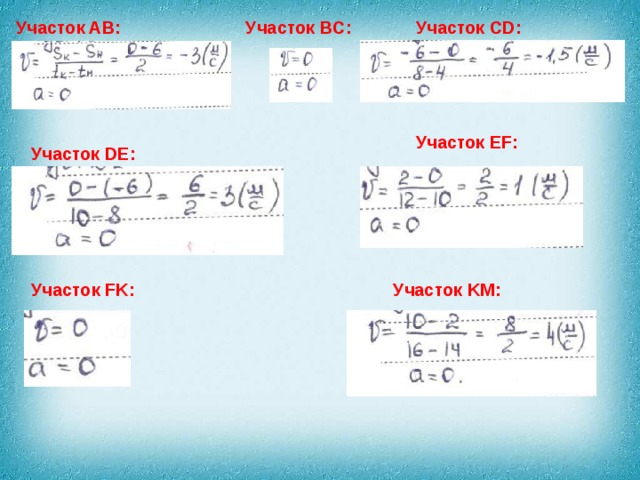 Участок AB:
υ = Sк - Sн / tк - tн = 0 - 6 / 2 = -3 (м/с)
a = 0
Участок BC:
υ = 0
a = 0
Участок CD:
υ = -6 - 0 / 8 - 4 = -6 / 4 = -1,5 (м/с)
a = 0
Участок DE:
υ = 0 - (-6) / 10 - 8 = 6 / 2 = 3 (м/с)
a = 0
Участок EF:
υ = 2 - 0 / 12 - 10 = 2 / 2 = 1 (м/с)
a = 0
Участок FK:
υ = 0
a = 0
Участок KM:
υ = 10 - 2 / 16 - 14 = 8 / 2 = 4 (м/с)
a = 0.